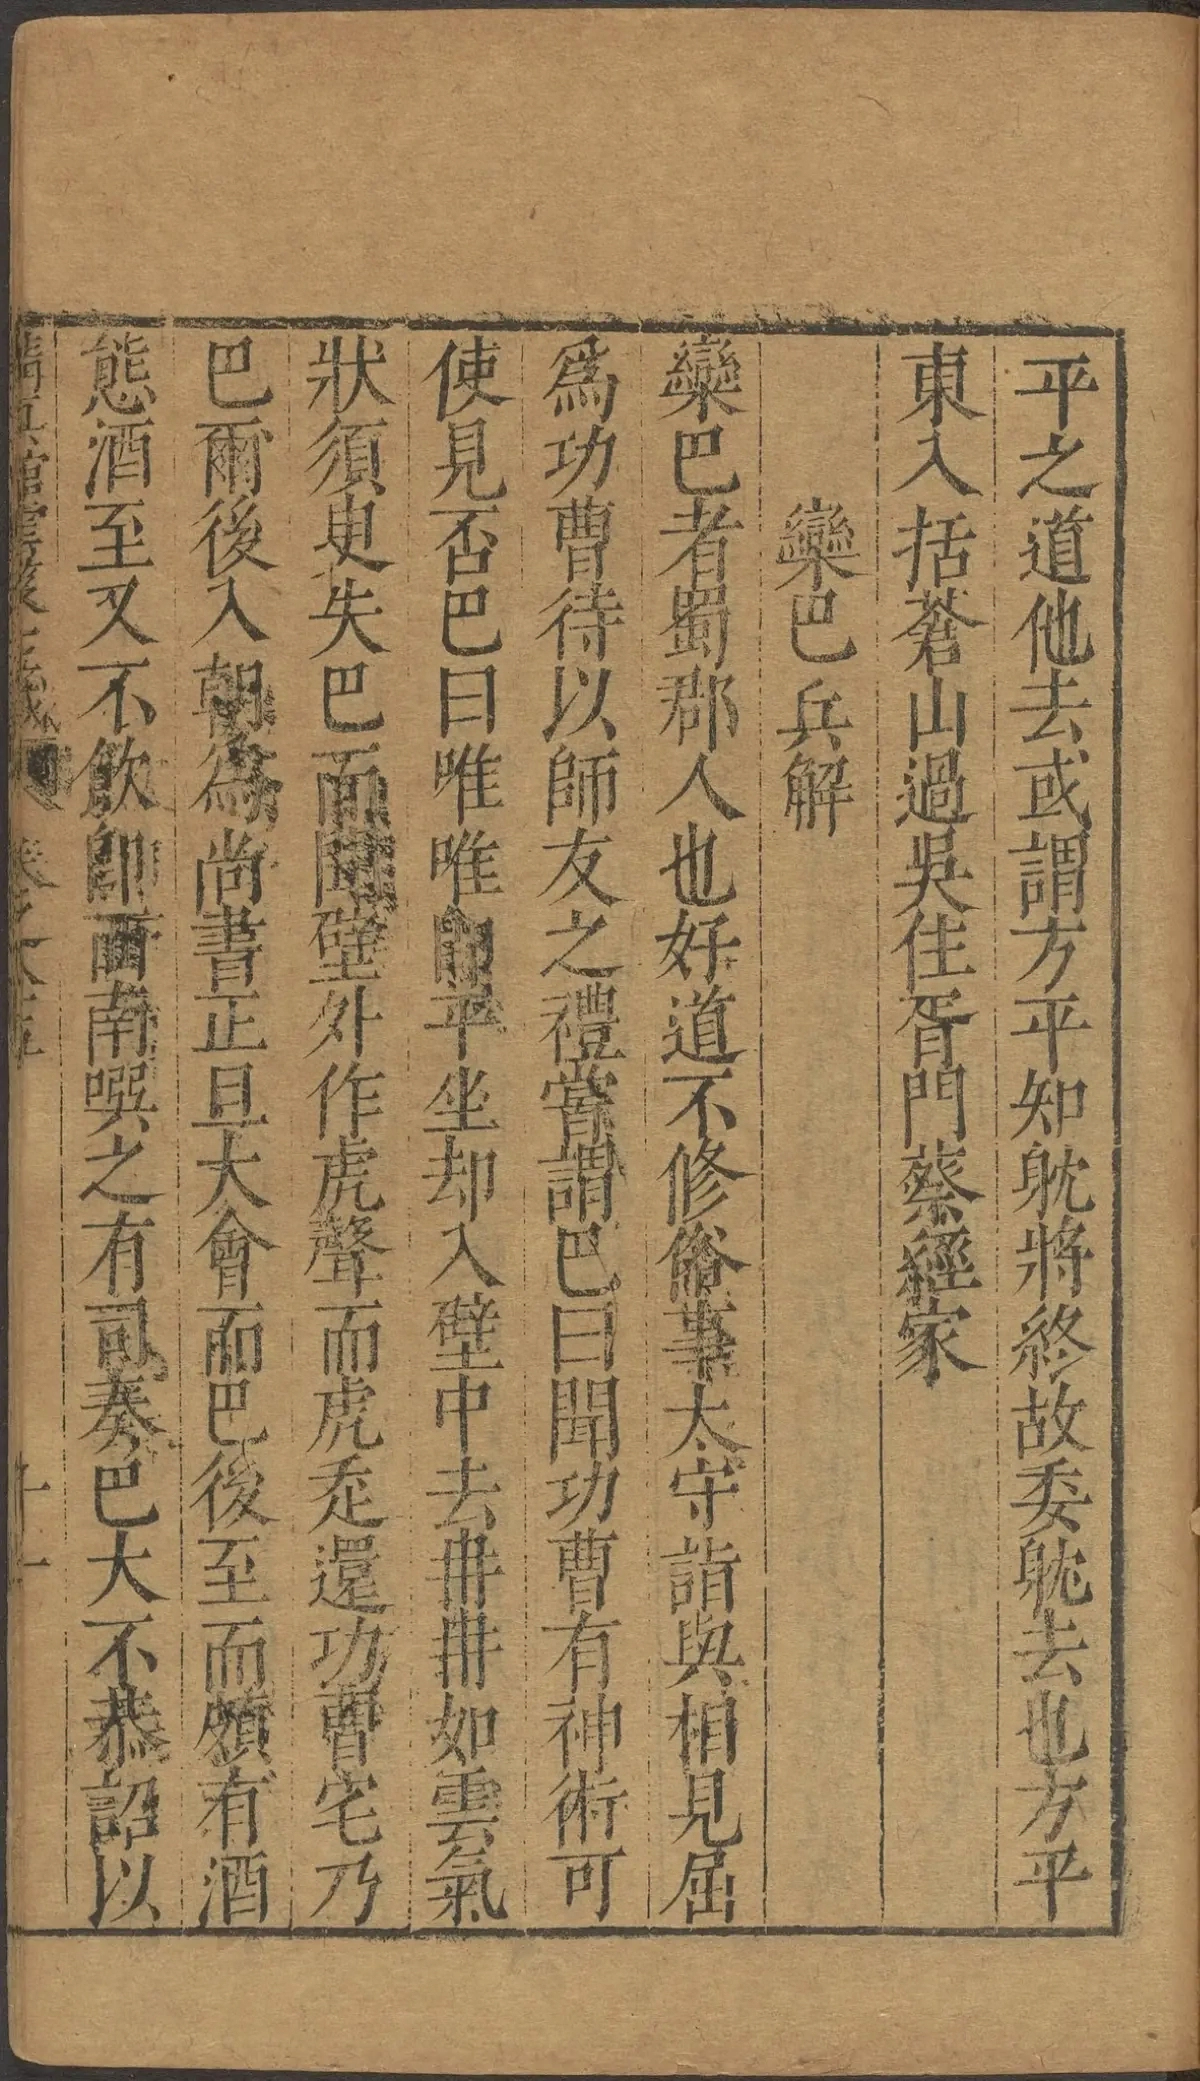 平之道他去或謂方平知躭將終故委躭去也方平
東入括蒼山過吳住胥門蔡經家
欒巴 兵解
欒巴者蜀郡人也好道不修俗事太守詣與相見屈
爲功曹待以師友之禮嘗謂巴曰聞功曹有神術可
使見否巴曰唯唯即平坐却入壁中去冉冉如雲氣
狀須臾失巴而聞壁外作虎聲而虎走還功曹宅乃
巴爾後入朝爲尚書正旦大會而巴後至而頗有酒
態酒至又不飲即西南噀之有司奏巴大不恭詔以